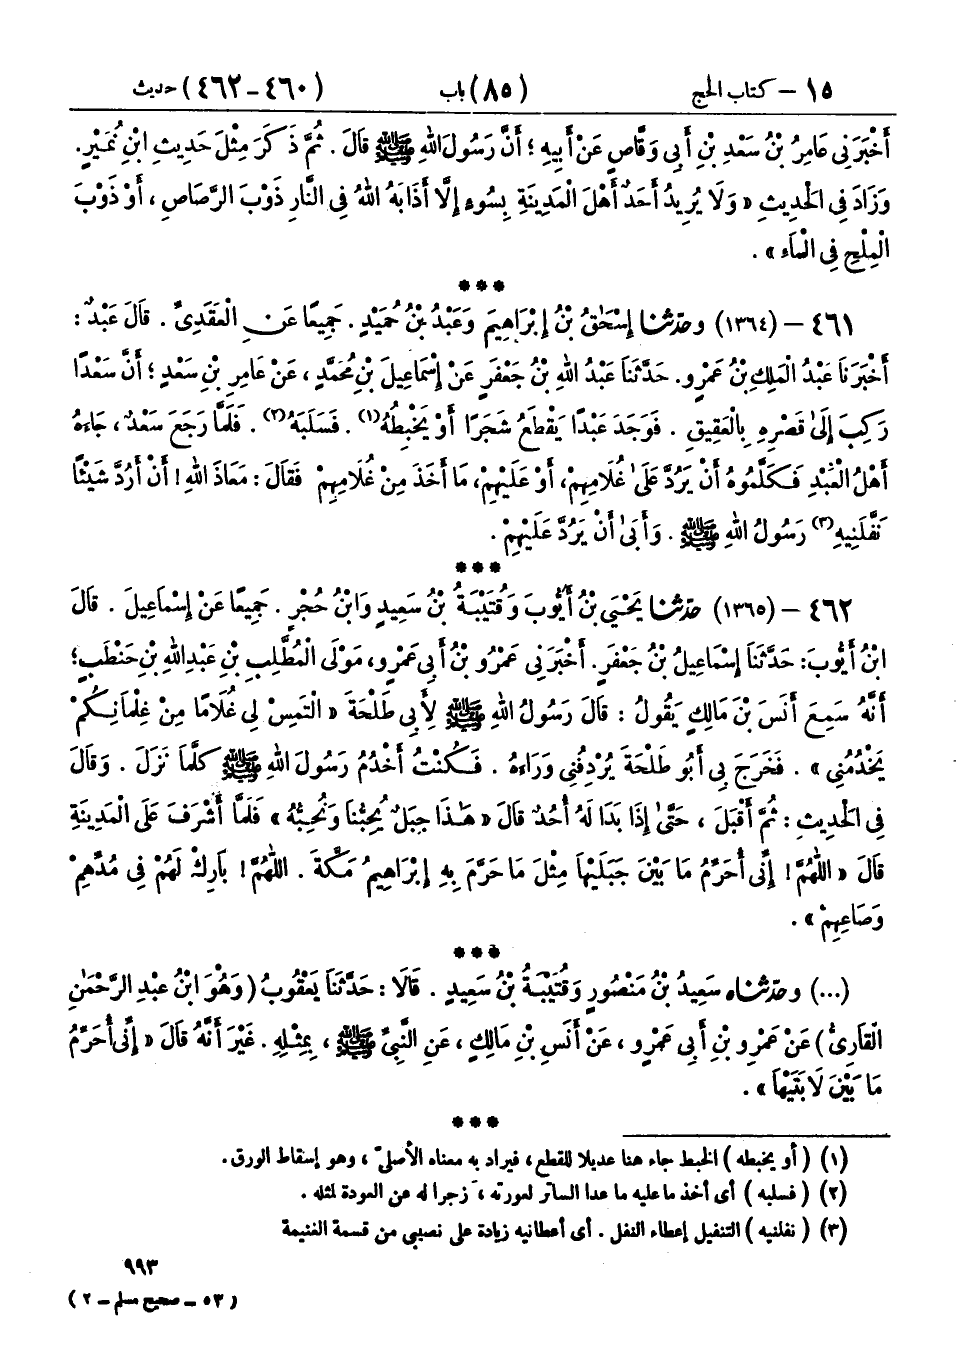 ١٥ – كتاب الحج (٨٥) باب (٤٦٠–٤٦٢) حديث
أَخْبَرَنِي عَامِرُ بْنُ سَعْدِ بْنِ أَبِي وَقَّاصٍ عَنْ أَبِيهِ ؛ أَنَّ رَسُولَ اللهِ ﷺ قَالَ . ثُمَّ ذَكَرَ مِثْلَ حَدِيثِ ابْنِ نُمَيْرٍ.
وَزَادَ فِي الْحَدِيثِ « وَلَا يُرِيدُ أَحَدٌ أَهْلَ الْمَدِينَةِ بِسُوءٍ إِلَّا أَذَابَهُ اللهُ فِي النَّارِ ذَوْبَ الرَّصَاصِ ، أَوْ ذَوْبَ
الْمِلْحِ فِي الْمَاءِ » .
***
٤٦١ – (١٣٦٤) وحَدَّثَنَا إِسْحَٰقُ بْنُ إِبْرَاهِيمَ وَعَبْدُ بْنُ حُمَيْدٍ . جَمِيعًا عَنِ الْعَقَدِيِّ . قَالَ عَبْدٌ :
أَخْبَرَنَا عَبْدُ الْمَلِكِ بْنُ عَمْرٍو. حَدَّثَنَا عَبْدُ اللهِ بْنُ جَعْفَرٍ عَنْ إِسْمَاعِيلَ بْنِ مُحَمَّدٍ ، عَنْ عَامِرِ بْنِ سَعْدٍ ؛ أَنَّ سَعْدًا
رَكِبَ إِلَىٰ قَصْرِهِ بِالْعَقِيقِ . فَوَجَدَ عَبْدًا يَقْطَعُ شَجَرًا أَوْ يَخْبِطُهُ(١) . فَسَلَبَهُ(٢) . فَلَمَّا رَجَعَ سَعْدٌ ، جَاءَهُ
أَهْلُ الْعَبْدِ فَكَلَّمُوهُ أَنْ يَرُدَّ عَلَىٰ غُلَامِهِمْ، أَوْ عَلَيْهِمْ، مَا أَخَذَ مِنْ غُلَامِهِمْ فَقَالَ : مَعَاذَ اللهِ! أَنْ أَرُدَّ شَيْئًا
نَفَّلَنِيهِ(٣) رَسُولُ اللهِ ﷺ . وَأَبَىٰ أَنْ يَرُدَّ عَلَيْهِمْ .
***
٤٦٢ – (١٣٦٥) حَدَّثَنَا يَحْيَىٰ بْنُ أَيُّوبَ وَقُتَيْبَةُ بْنُ سَعِيدٍ وَابْنُ حُجْرٍ . جَمِيعًا عَنْ إِسْمَاعِيلَ . قَالَ
ابْنُ أَيُّوبَ: حَدَّثَنَا إِسْمَاعِيلُ بْنُ جَعْفَرٍ. أَخْبَرَنِي عَمْرُو بْنُ أَبِي عَمْرٍو، مَوْلَى الْمُطَّلِبِ بْنِ عَبْدِ اللهِ بْنِ حَنْطَبٍ؛
أَنَّهُ سَمِعَ أَنَسَ بْنَ مَالِكٍ يَقُولُ : قَالَ رَسُولُ اللهِ ﷺ لِأَبِي طَلْحَةَ « الْتَمِسْ لِي غُلَامًا مِنْ غِلْمَانِكُمْ
يَخْدُمُنِي » . فَخَرَجَ بِي أَبُو طَلْحَةَ يُرْدِفُنِي وَرَاءَهُ . فَكُنْتُ أَخْدُمُ رَسُولَ اللهِ ﷺ كُلَّمَا نَزَلَ . وَقَالَ
فِي الْحَدِيثِ : ثُمَّ أَقْبَلَ ، حَتَّىٰ إِذَا بَدَا لَهُ أُحُدٌ قَالَ « هَٰذَا جَبَلٌ يُحِبُّنَا وَنُحِبُّهُ » فَلَمَّا أَشْرَفَ عَلَى الْمَدِينَةِ
قَالَ « اللّٰهُمَّ! إِنِّي أُحَرِّمُ مَا بَيْنَ جَبَلَيْهَا مِثْلَ مَا حَرَّمَ بِهِ إِبْرَاهِيمُ مَكَّةَ . اللّٰهُمَّ! بَارِكْ لَهُمْ فِي مُدِّهِمْ
وَصَاعِهِمْ » .
***
(...) وحَدَّثَنَاه سَعِيدُ بْنُ مَنْصُورٍ وَقُتَيْبَةُ بْنُ سَعِيدٍ . قَالَا : حَدَّثَنَا يَعْقُوبُ (وَهُوَ ابْنُ عَبْدِ الرَّحْمَٰنِ
الْقَارِيُّ) عَنْ عَمْرِو بْنِ أَبِي عَمْرٍو ، عَنْ أَنَسِ بْنِ مَالِكٍ ، عَنِ النَّبِيِّ ﷺ ، بِمِثْلِهِ . غَيْرَ أَنَّهُ قَالَ « إِنِّي أُحَرِّمُ
مَا بَيْنَ لَابَتَيْهَا » .
***
(١) ( أو يخبطه ) الخبط جاء هنا عديلا للقطع ، فيراد به معناه الأصلىّ ، وهو إسقاط الورق .
(٢) ( فسلبه ) أى أخذ ما عليه ما عدا الساتر لعورته ، زجرا له عن العودة لمثله .
(٣) ( نفلنيه ) التنفيل إعطاء النفل . أى أعطانيه زيادة على نصيبى من قسمة الغنيمة
٩٩٣
( ٥٣ – صحيح مسلم – ٢ )